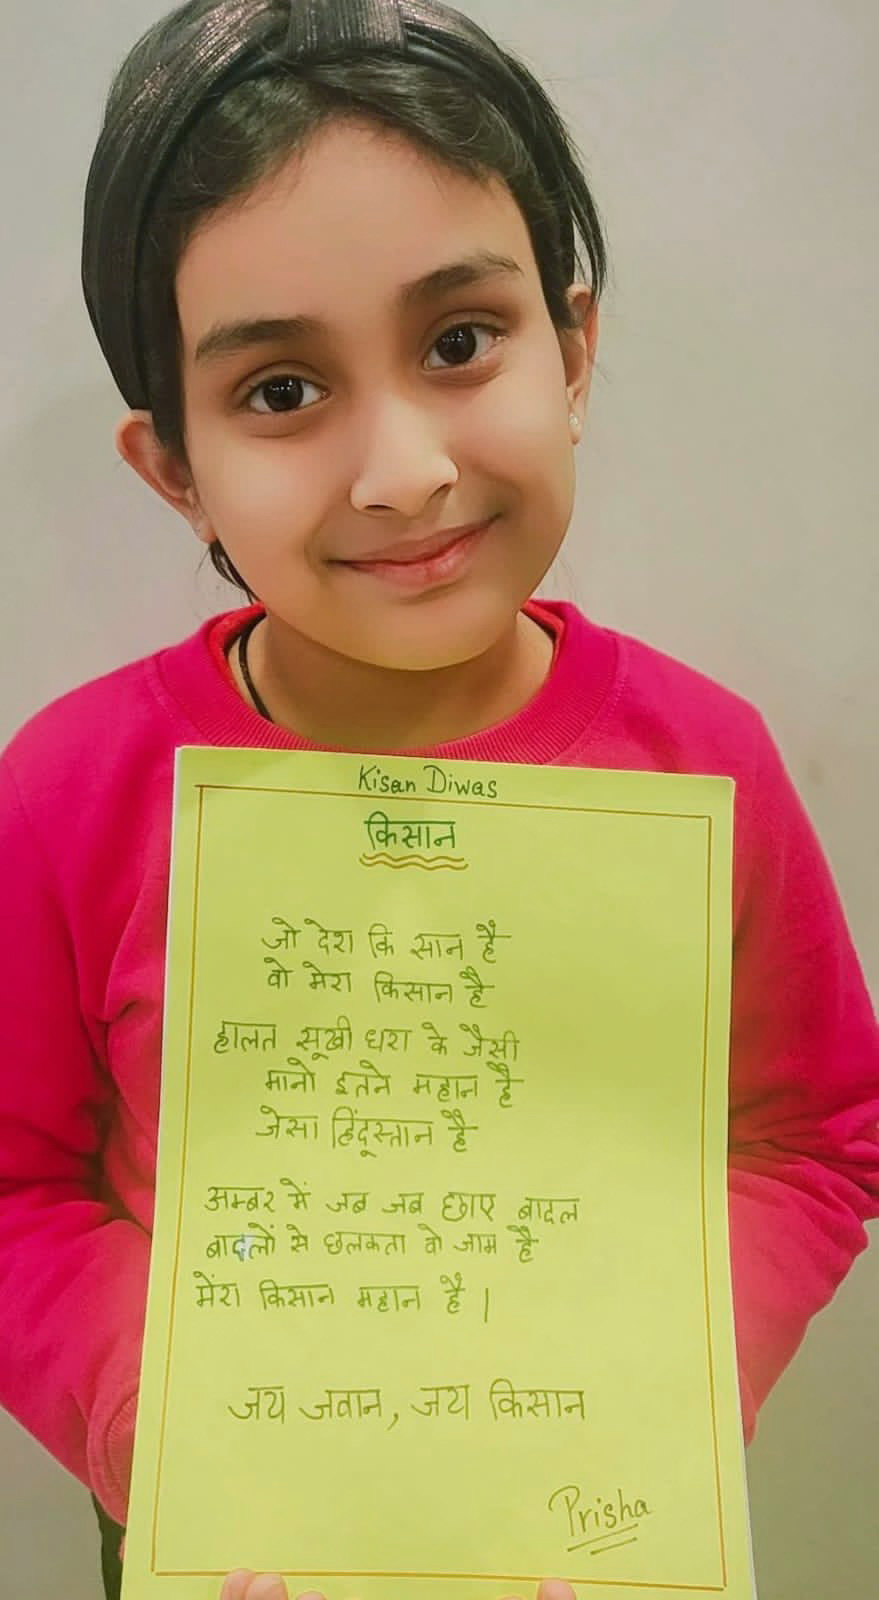 Kisan Diwas
किसान
जो देश कि सान है
वो मेरा किसान है
हालत सूखी धरा के जैसी
मानो इतने महान है
जेसा हिंदूस्तान है
अम्बर में जब जब छाए बादल
बादलों से छलकता वो जाम है
मेंरा किसान महान है।
जय जवान, जय किसान
Prisha